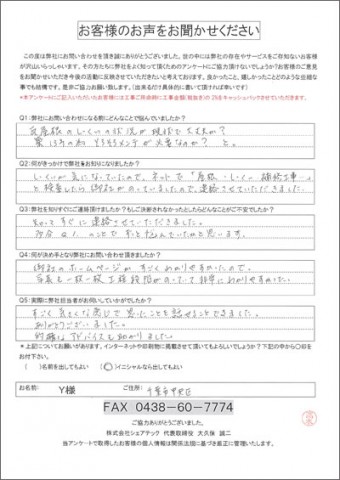 お客様のお声をお聞かせください
この度は弊社にお問い合わせを頂き誠にありがとうございました。世の中には弊社の存在やサービスをご存知ないお客様
が沢山いらっしゃいます。その方たちに弊社をよく知って頂くためのアンケートにご協力頂けないでしょうか?お客様のご意見
をお聞かせいただき今後の活動に反映させていただきたいと考えております。良かったこと、嬉しかったことどのような些細な
事でも結構です。是非ご協力お願い致します。(出来るだけ具体的に書いて頂ければ幸いです)
Q1:弊社に問い合わせになる前にどんなことで悩んでいましたか?
瓦屋根のしっくいの状況が現状で大丈夫か?
築13年の為そろそろメンテが必要なのか? と。
Q2:何がきっかけで弊社をお知りになりましたか?
しっくいが気になっていたので、ネットで「屋根・しっくい 補修工事…」
と検索したら御社がのっていましたので、連絡させていただきました
Q3:弊社を知りすぐにご連絡頂けましたか?もしご決断されなかったとしたらどんなことがご不安でしたか?
知ってすぐに連絡させていただきました。
Q1.のことでずっと悩んでいたかと思います。
Q4:何が決め手となり弊社にお問い合わせ頂きましたか?
御社のホームページがすごくわかりやすかったので。
写真も一枚一枚工程段階がのっていて非常にわかりやすかった。
Q5:実際に弊社担当者がお伺いしていかがでしたか?
すごく気さくな感じで思ったことを話せることできました。
ありがとうございました。
的確なアドバイスも助かりました。
*上記についてお願いがあります。インターネットや印刷物に掲載させて頂いてもよろしいでしょうか?下記の中から〇印を
お付け下さい。
( )名前を出してもよい (〇)イニシャルなら出してもよい
お名前: Y様 ご住所: 千葉市中央区
FAX 0438-60-7774
ご協力ありがとうございました。
株式会社シェアテック 代表取締役 大久保 誠二
当アンケートで取得したお客様の個人情報は関係法団に基づき厳正に管理いたします。